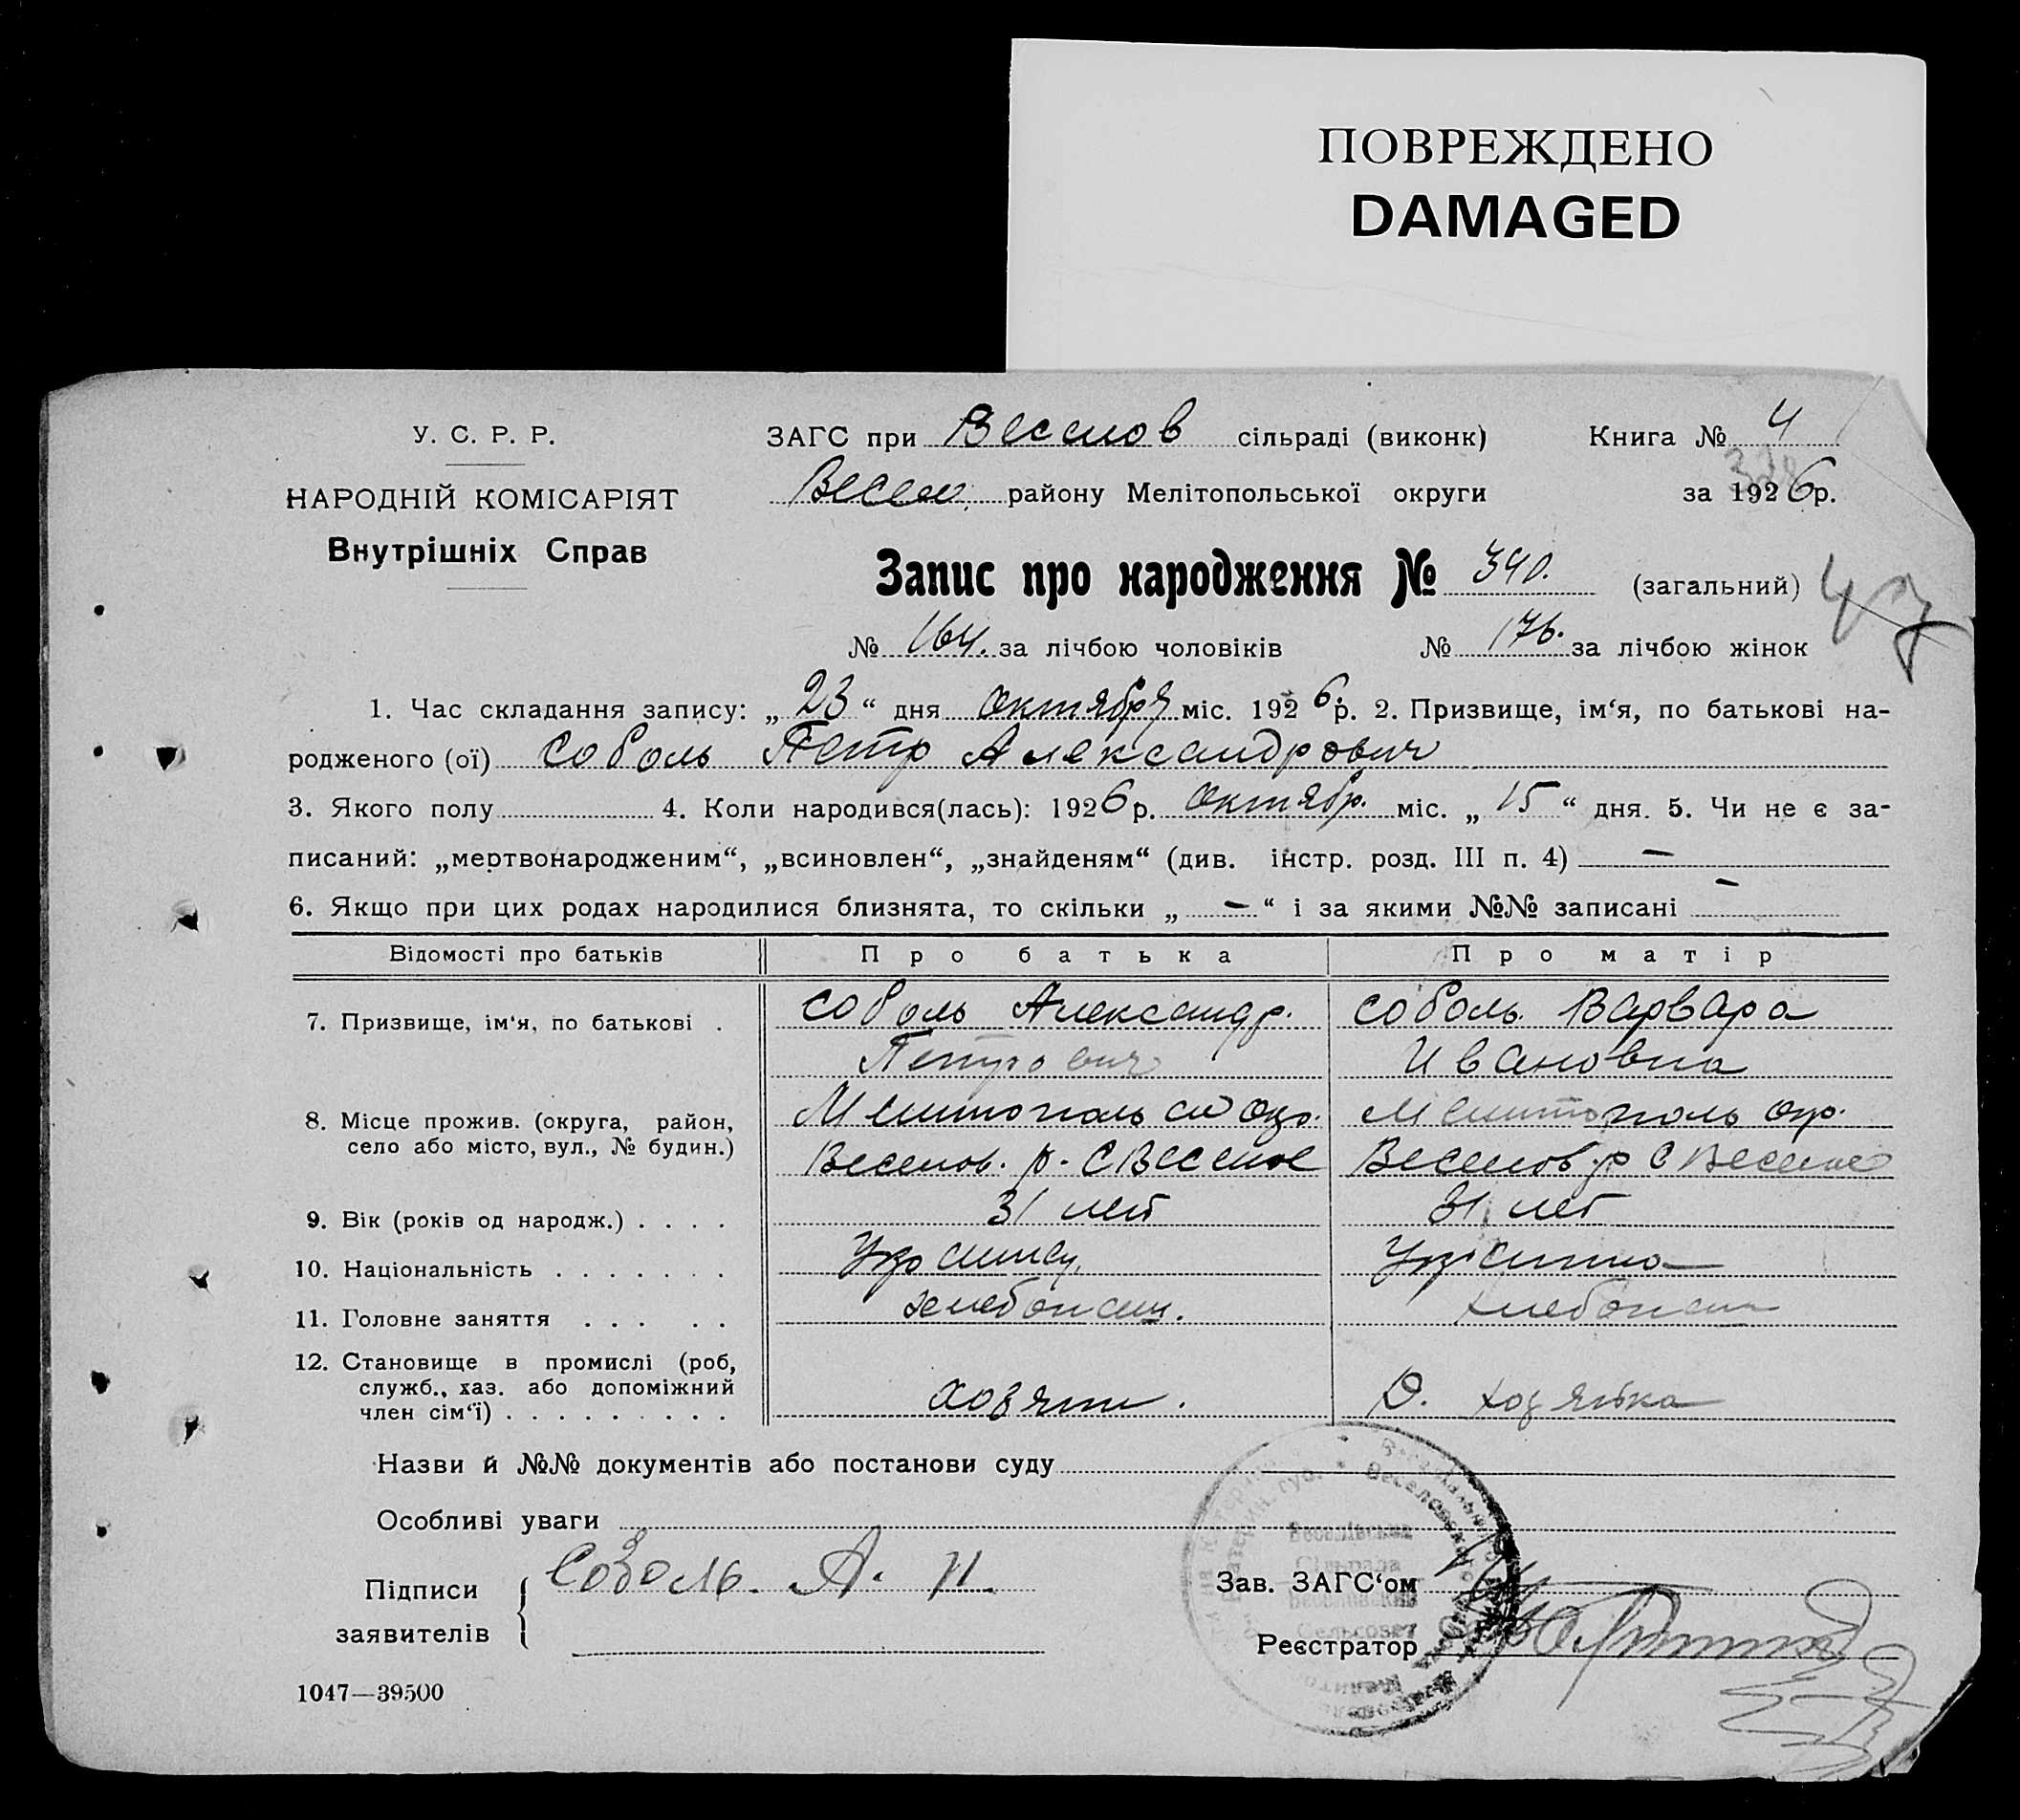 ПОВРЕЖДЕНО
DAMAGED
У. С. Р. Р.
НАРОДНІЙ КОМІСАРІЯТ
Внутрішніх Справ
ЗАГС при Веселов сільраді (виконк) Книга № 4
Весел. району Мелітопольської округи за 1926 р.
Запис про народження № 340. (загальний) 47
№ 164. за лічбою чоловіків № 176. за лічбою жінок
1. Час складання запису: „23“ дня Октября міс. 1926 р. 2. Призвище, ім‘я, по батькові на-
родженого (ої) Соболь Петр Александрович
3. Якого полу 4. Коли народився(лась): 1926 р. Октябр. міс. „15“ дня. 5. Чи не є за-
писаний: „мертвонародженим“, „всиновлен“, „знайденям“ (див. інстр. розд. III п. 4) —
6. Якщо при цих родах народилися близнята, то скільки „—“ і за якими №№ записані —
Відомості про батьків Про батька Про матір
7. Призвище, ім‘я, по батькові . Соболь Александр. Соболь Варвара
Петрович Ивановна
8. Місце прожив. (округа, район, Мелитопольск окр. Мелитополь окр.
село або місто, вул., № будин.) Веселов. р. С Веселое Веселов. р С Веселое
9. Вік (років од народж.) . . . . 31 лет 31 лет
10. Національність . . . . . . .
11. Головне заняття . . . . . хлебопаш. хлебопаш
12. Становище в промислі (роб,
служб., хаз. або допоміжний
член сім‘ї) . . . . . . . . . хозяин. Д. хозяйка
Назви й №№ документів або постанови суду
Особливі уваги
Підписи Соболь. А. П.
заявителів
Зав. ЗАГС‘ом
Реєстратор
Веселівська
Сільрада
Веселовский
Сельсовет
1047—39500